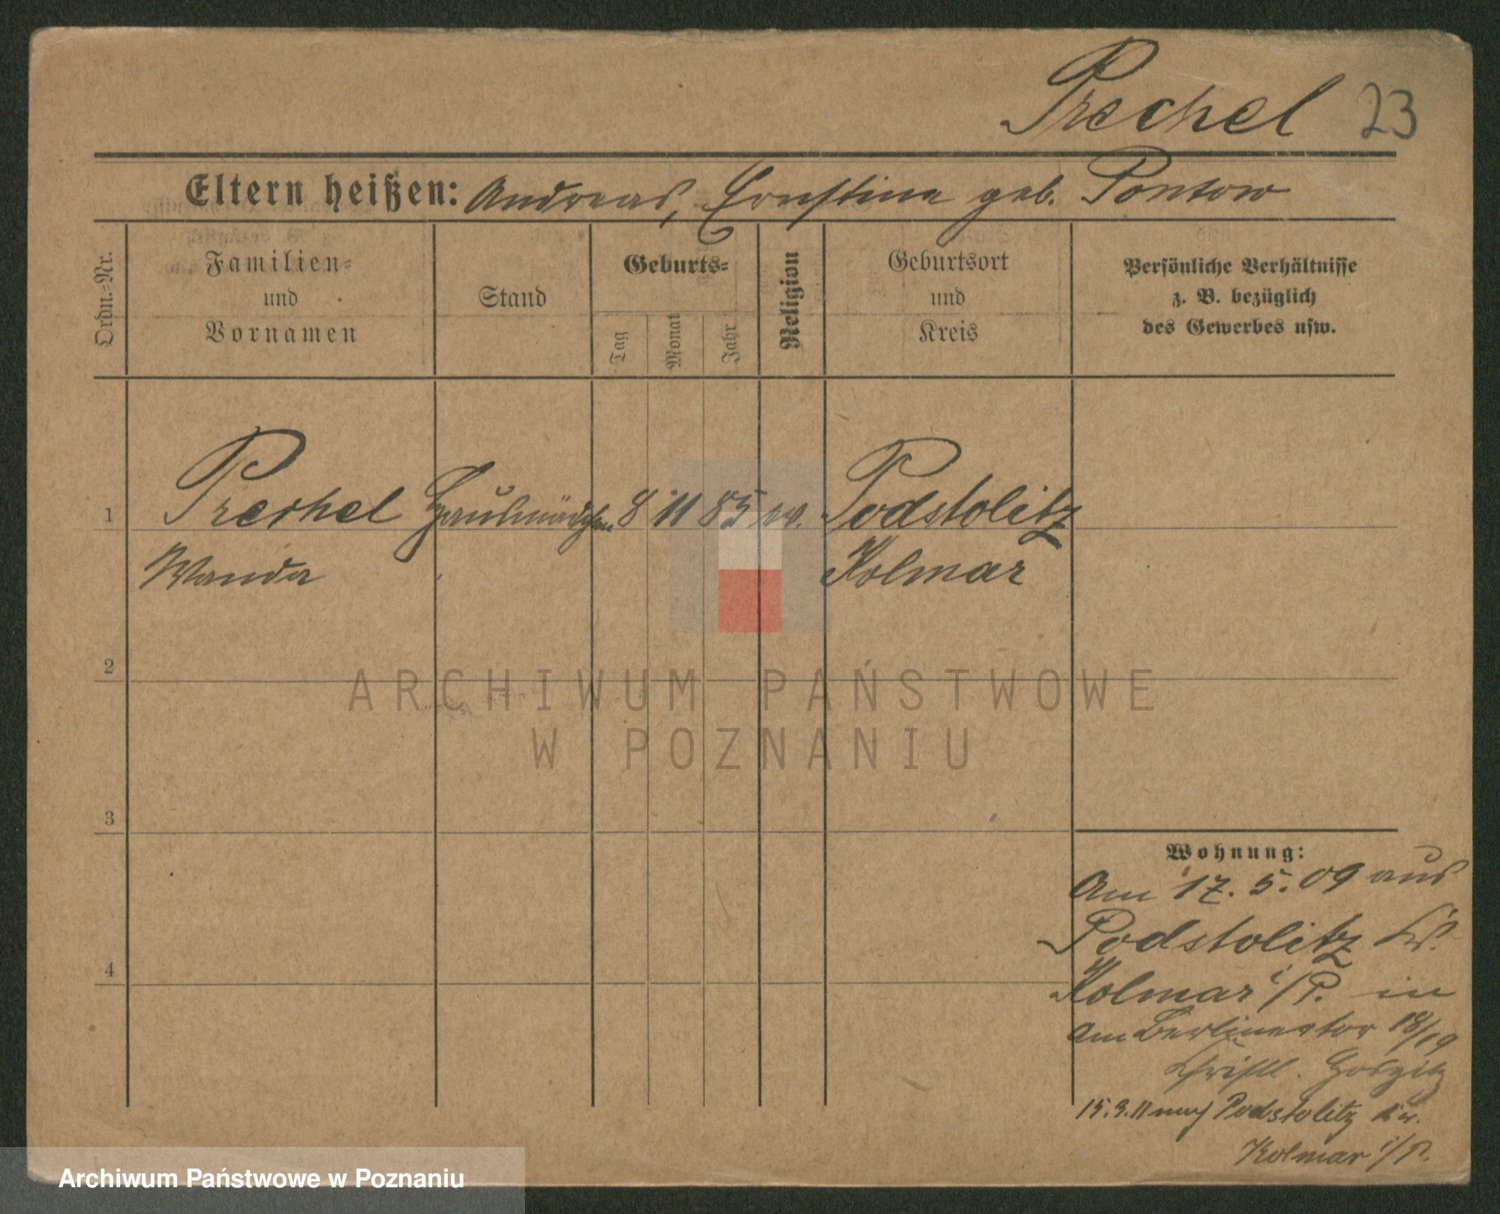 Prechel 23
Eltern heißen: Andreas, Ernstine geb. Pontow
Ordn.-Nr.
Familien- und Vornamen
Stand
Geburts-
Tag
Monat
Jahr
Religion
Geburtsort und Kreis
Persönliche Verhältnisse
z. B. bezüglich
des Gewerbes usw.
1 Prechel Hausmädchen 8 11 85 ev. Podstolitz
Wanda Kolmar
2
ARCHIWUM PAŃSTWOWE
W POZNANIU
3
Wohnung:
Am 17. 5. 09 aus
Podstolitz Kr.
4
Kolmar i/P. in
Am Berlinertor 18/19
Christl. Hospitz
15.9.11 nach Podstolitz Kr.
Kolmar i/P.
Archiwum Państwowe w Poznaniu